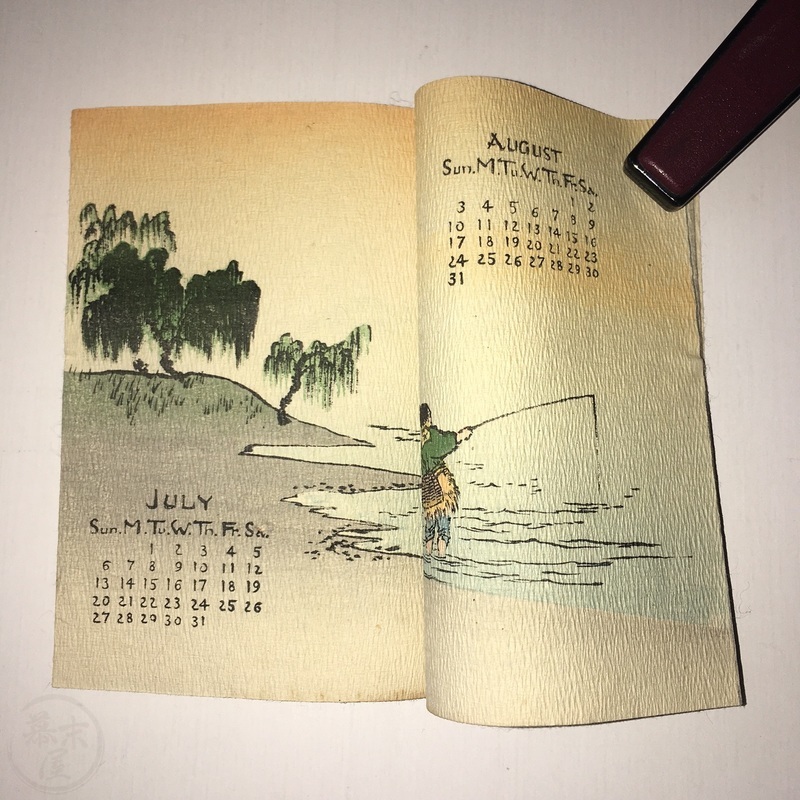 JULY
Sun. M. Tu. W. Th. Fr. Sa.
1 2 3 4 5
6 7 8 9 10 11 12
13 14 15 16 17 18 19
20 21 22 23 24 25 26
27 28 29 30 31
AUGUST
Sun. M. Tu. W. Th. Fr. Sa.
1 2
3 4 5 6 7 8 9
10 11 12 13 14 15 16
17 18 19 20 21 22 23
24 25 26 27 28 29 30
31
幕末屋